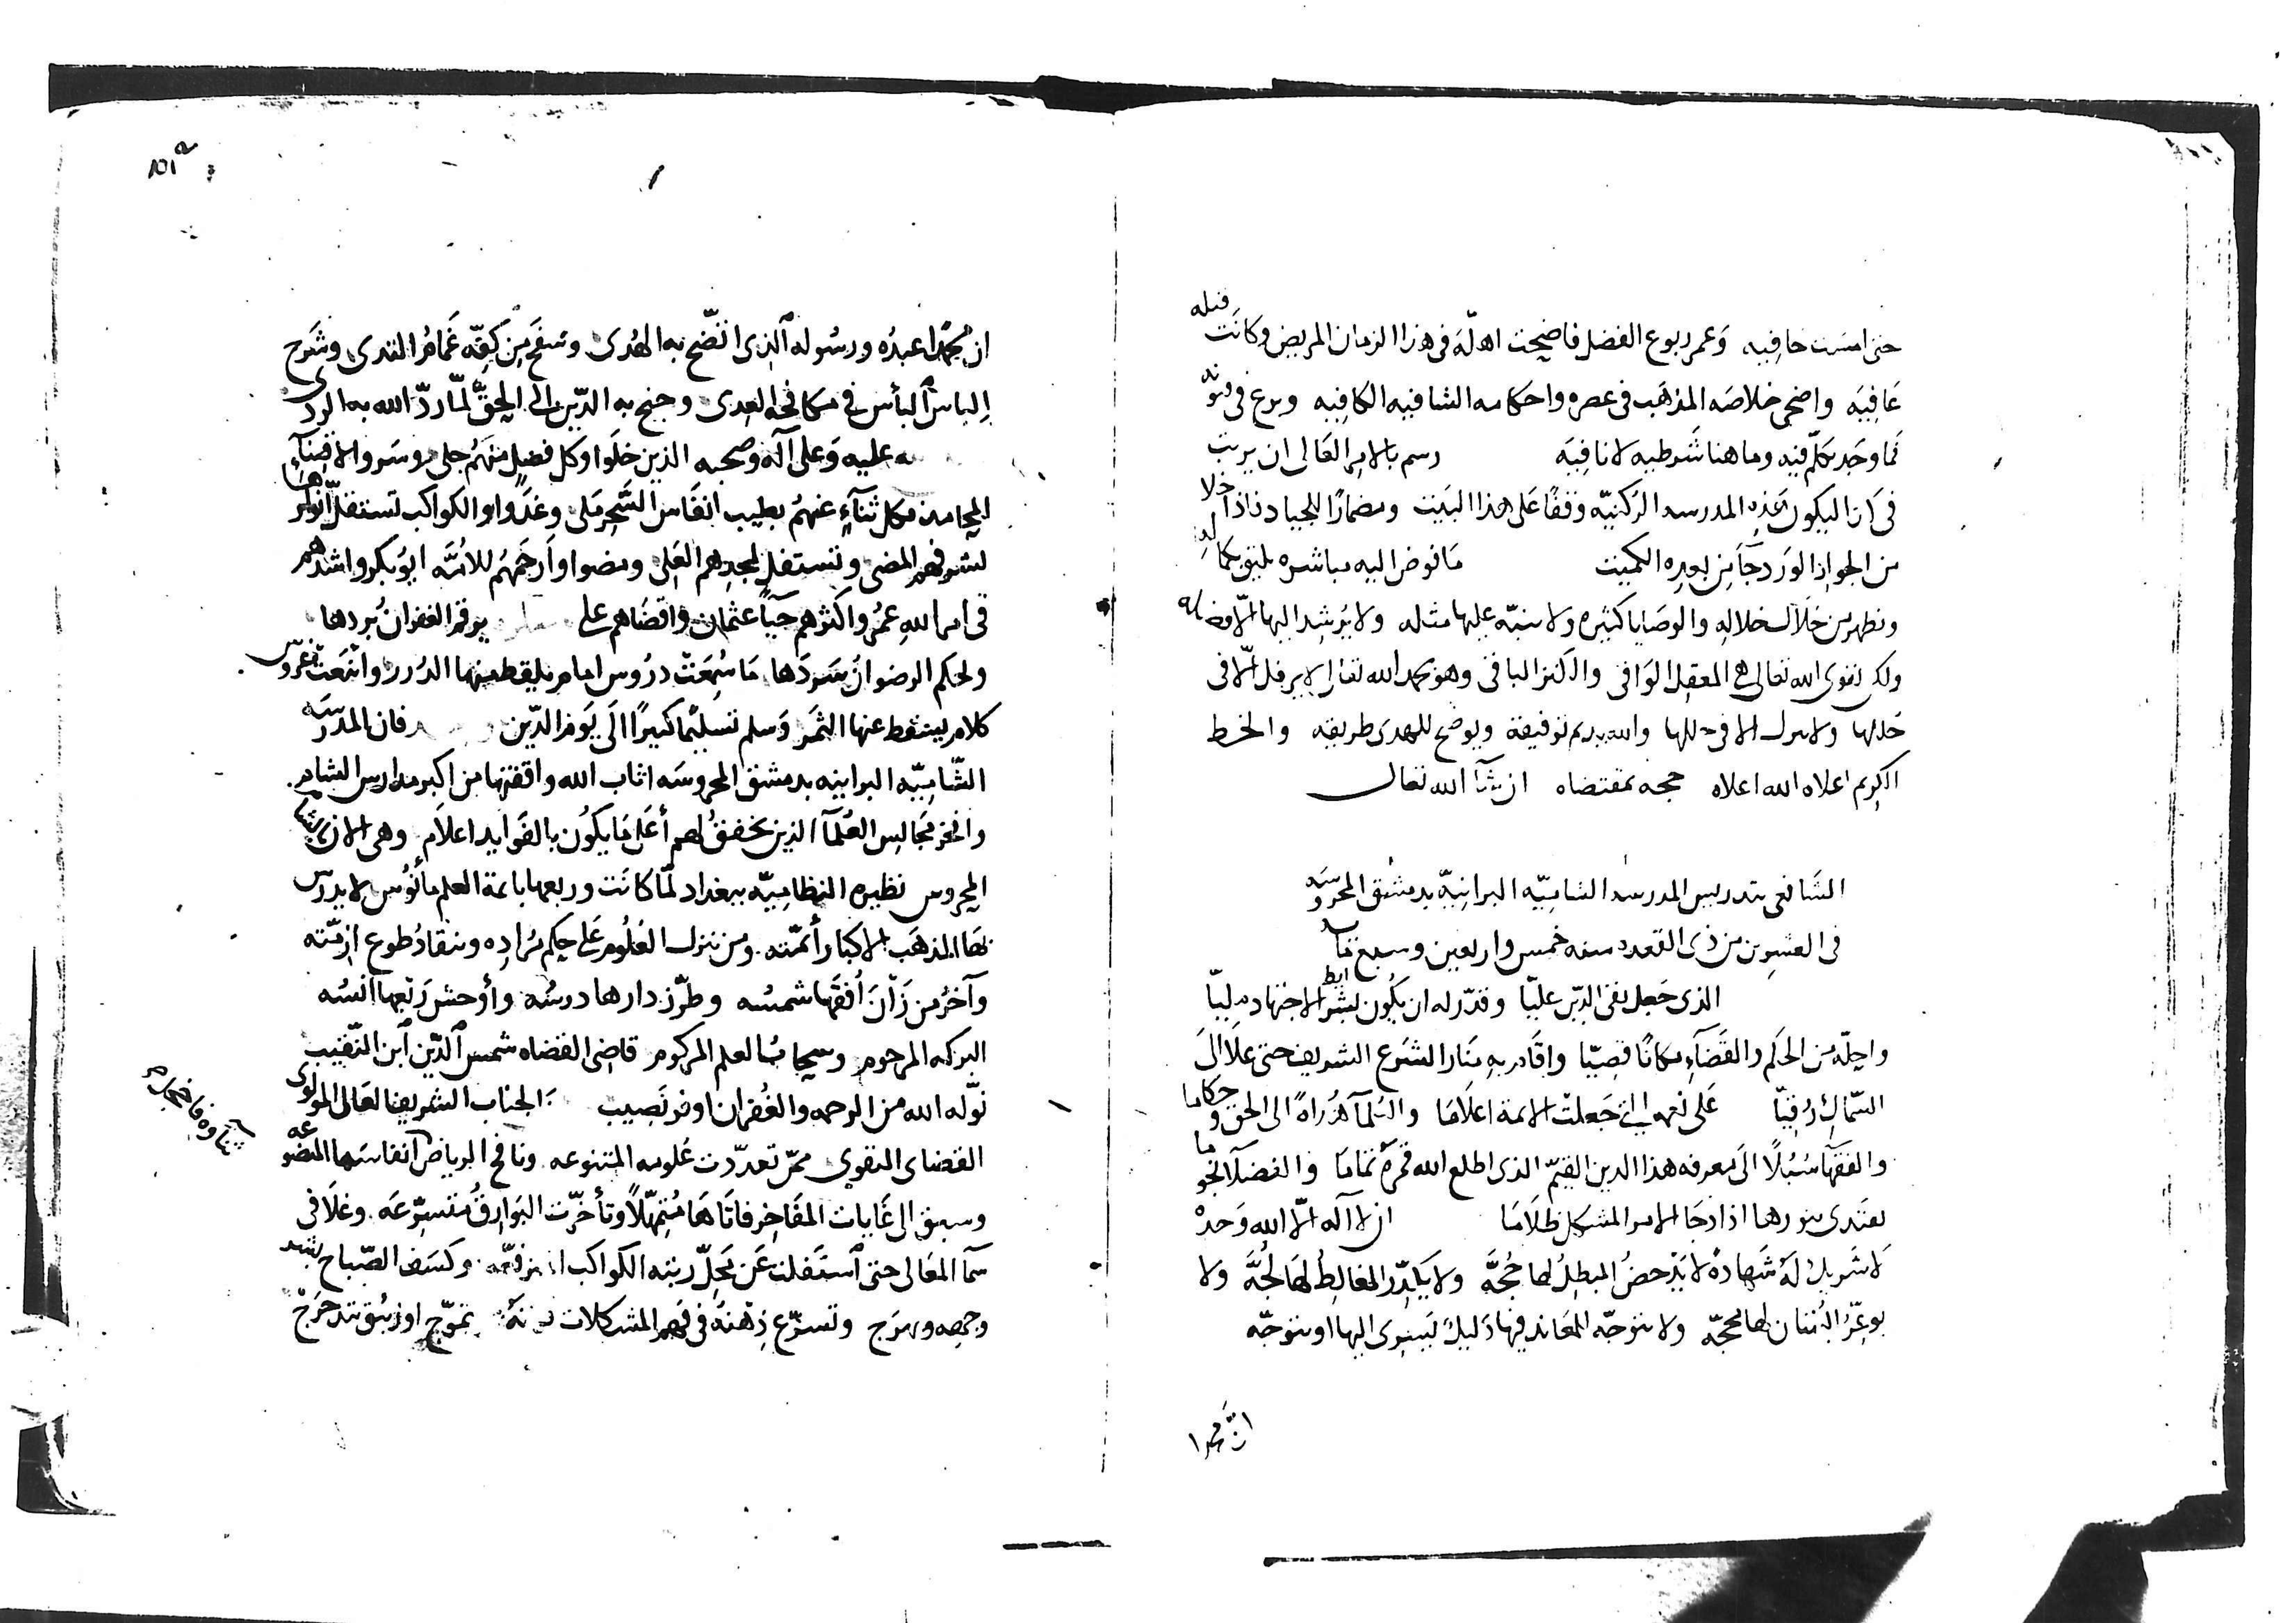 حتى امست حافيه وعمر ربوع الفضل فاضحت اهلّة فى هذا الزمان المريض وكانت قبله
عافيه واضحى خلاصه المذهب فى عصره واحكامه الشافيه الكافيه وبرع فى فنونه
فما وجد تكلّم فيه وما هنا شرطيه لا نافيه رسم بالامر العالى ان يرتب
فى كذا ليكون هذه المدرسه الركنيّه وقفًا على هذا البيت ومضمارًا للجياد اذا خلا
من الجواد الورد جآ من بعده الكميت فليباشر ما فوض اليه مباشره تليق بكماله
وتظهر من خلال خلاله والوصايا كثيره ولا ينبّه عليها مثله ولا يرشد اليها الّا فضله
ولكن تقوى الله تعالى هى المعقل الواقى والكنز الباقى وهو بحمد الله تعالى لا يرفل الّا فى
حللها ولا ينزل الا فى حللها والله يديم توفيقه ويوضح للهدى طريقه والخط
الكريم اعلاه الله اعلاه حجه بمقتضاه ان شآ الله تعالى
الشافعى بتدريس المدرسه الشاميّه البرانيّه بدمشق المحروسه
فى العشرين من ذى القعده سنه خمس واربعين وسبع مايه
الذى جعل تقى الدّين عليّا وقدّر له ان يكون بشرايط الاجتهاد مليّا
واحلّه من الحكم والقضآء مكانًا قصيّا واقام به منار الشرع الشريف حتى علا الى
السّماك رقيّا على نعمه التى جعلت الايمة اعلاما والعلمآ هُداةً الى الحق وحكاما
والفقها سُبُلًا الى معرفه هذا الدين القيّم الذى اطلع الله قمره تماما والفضلآ نجوما
يهتدى بنورها اذا دجا الامر المشكل ظلاما ان لا آله الّا الله وحده
لا شريك لهُ شهادةً لا يدحضُ المبطلُ لها حُجّه ولا يكدّر المغالطُ لها لُجّه ولا
يوعّرُ البُهتان لها محجّه ولا يتوجّه المعاند فيها دليلٌ ليسرى اليها او يتوجّه
انّ محمدا
ان محمدًا عبدُه ورسُوله الّذى اتّضح به الهُدى وسفح من كفّه غمامُ الندى وشرح
اِلباسُ البأس فى مكافحه العدى وجنح به الدّين الى الحقّ لمّا ردّ الله به الردى
عليه وعلى آله وصحبه الذين خلوا وكل فضل منهُم جلى وسروا لاقتنآء
المحامد فكل ثنآءٍ عنهُم بطيب انفاس السّحر ملى وغدوا والكواكب تستقلّ انوارها
لشرفهم المضى وتستفل لمجدهم العلى ومضوا وأرحمهُم للامّه ابوبكر واشدهم
فى امر الله عمرُ واكثرهم حيآً عثمان واقضاهم على يوفّر الغفران بُردها
ولحكم الرضوان سردها ما سُمعت درُوس امام يلتقط منها الدُرر واينعت غروس
كلام يتسقط عنها الثمر وسلم تسليمًا كبيرًا الى يوم الدّين فان المدرسه
الشّاميّه البرانيه بدمشق المحروسه اثاب الله واقفتها من اكبر مدارس الشام
وافخر مجالس العُلمآ الذين يخفقُ لهم أعلى ما يكون بالفوايد اعلام وهى الان بالشام
المحروس نظيره النظاميّه ببغداد لمّا كانت وربعها بايمة العلم مأنُوس لا يدرّس
بها المذهب الا كبار أئمّته ومن تنزل العُلُوم على حكم مُراده وتنقادُ طوع ازمّته
وآخرُ من زان أُفقها شمسُه وطرّز دارها درسُه وأوحش ربعها انسُه
البركه المرحوم وسحابُ العلم المركوم قاضى القضاه شمس الدّين ابن النّقيب
نوّله الله من الرحمه والغُفران اوفر نصيب الجناب الشريف العالى المولوى
القضاى التقوى ممّن تعدّدت علومه المتنوعه ونافح الرياض انفاسها المتضوعه
ثناوه فاخجلها
وسبق الى غايات المفاخر فاتاها مُتمهّلًا وتأخّرت البوارقُ متسرّعه وغلا فى
سمآ المعالى حتى استفلت عن محلّ رتبه الكواكب المترفّعه وكسف الصّباح بشهد
وجمعه وبهرج وتسرّع ذهنهُ فى فهم المشكلات تموّج او زيبق تدحرج